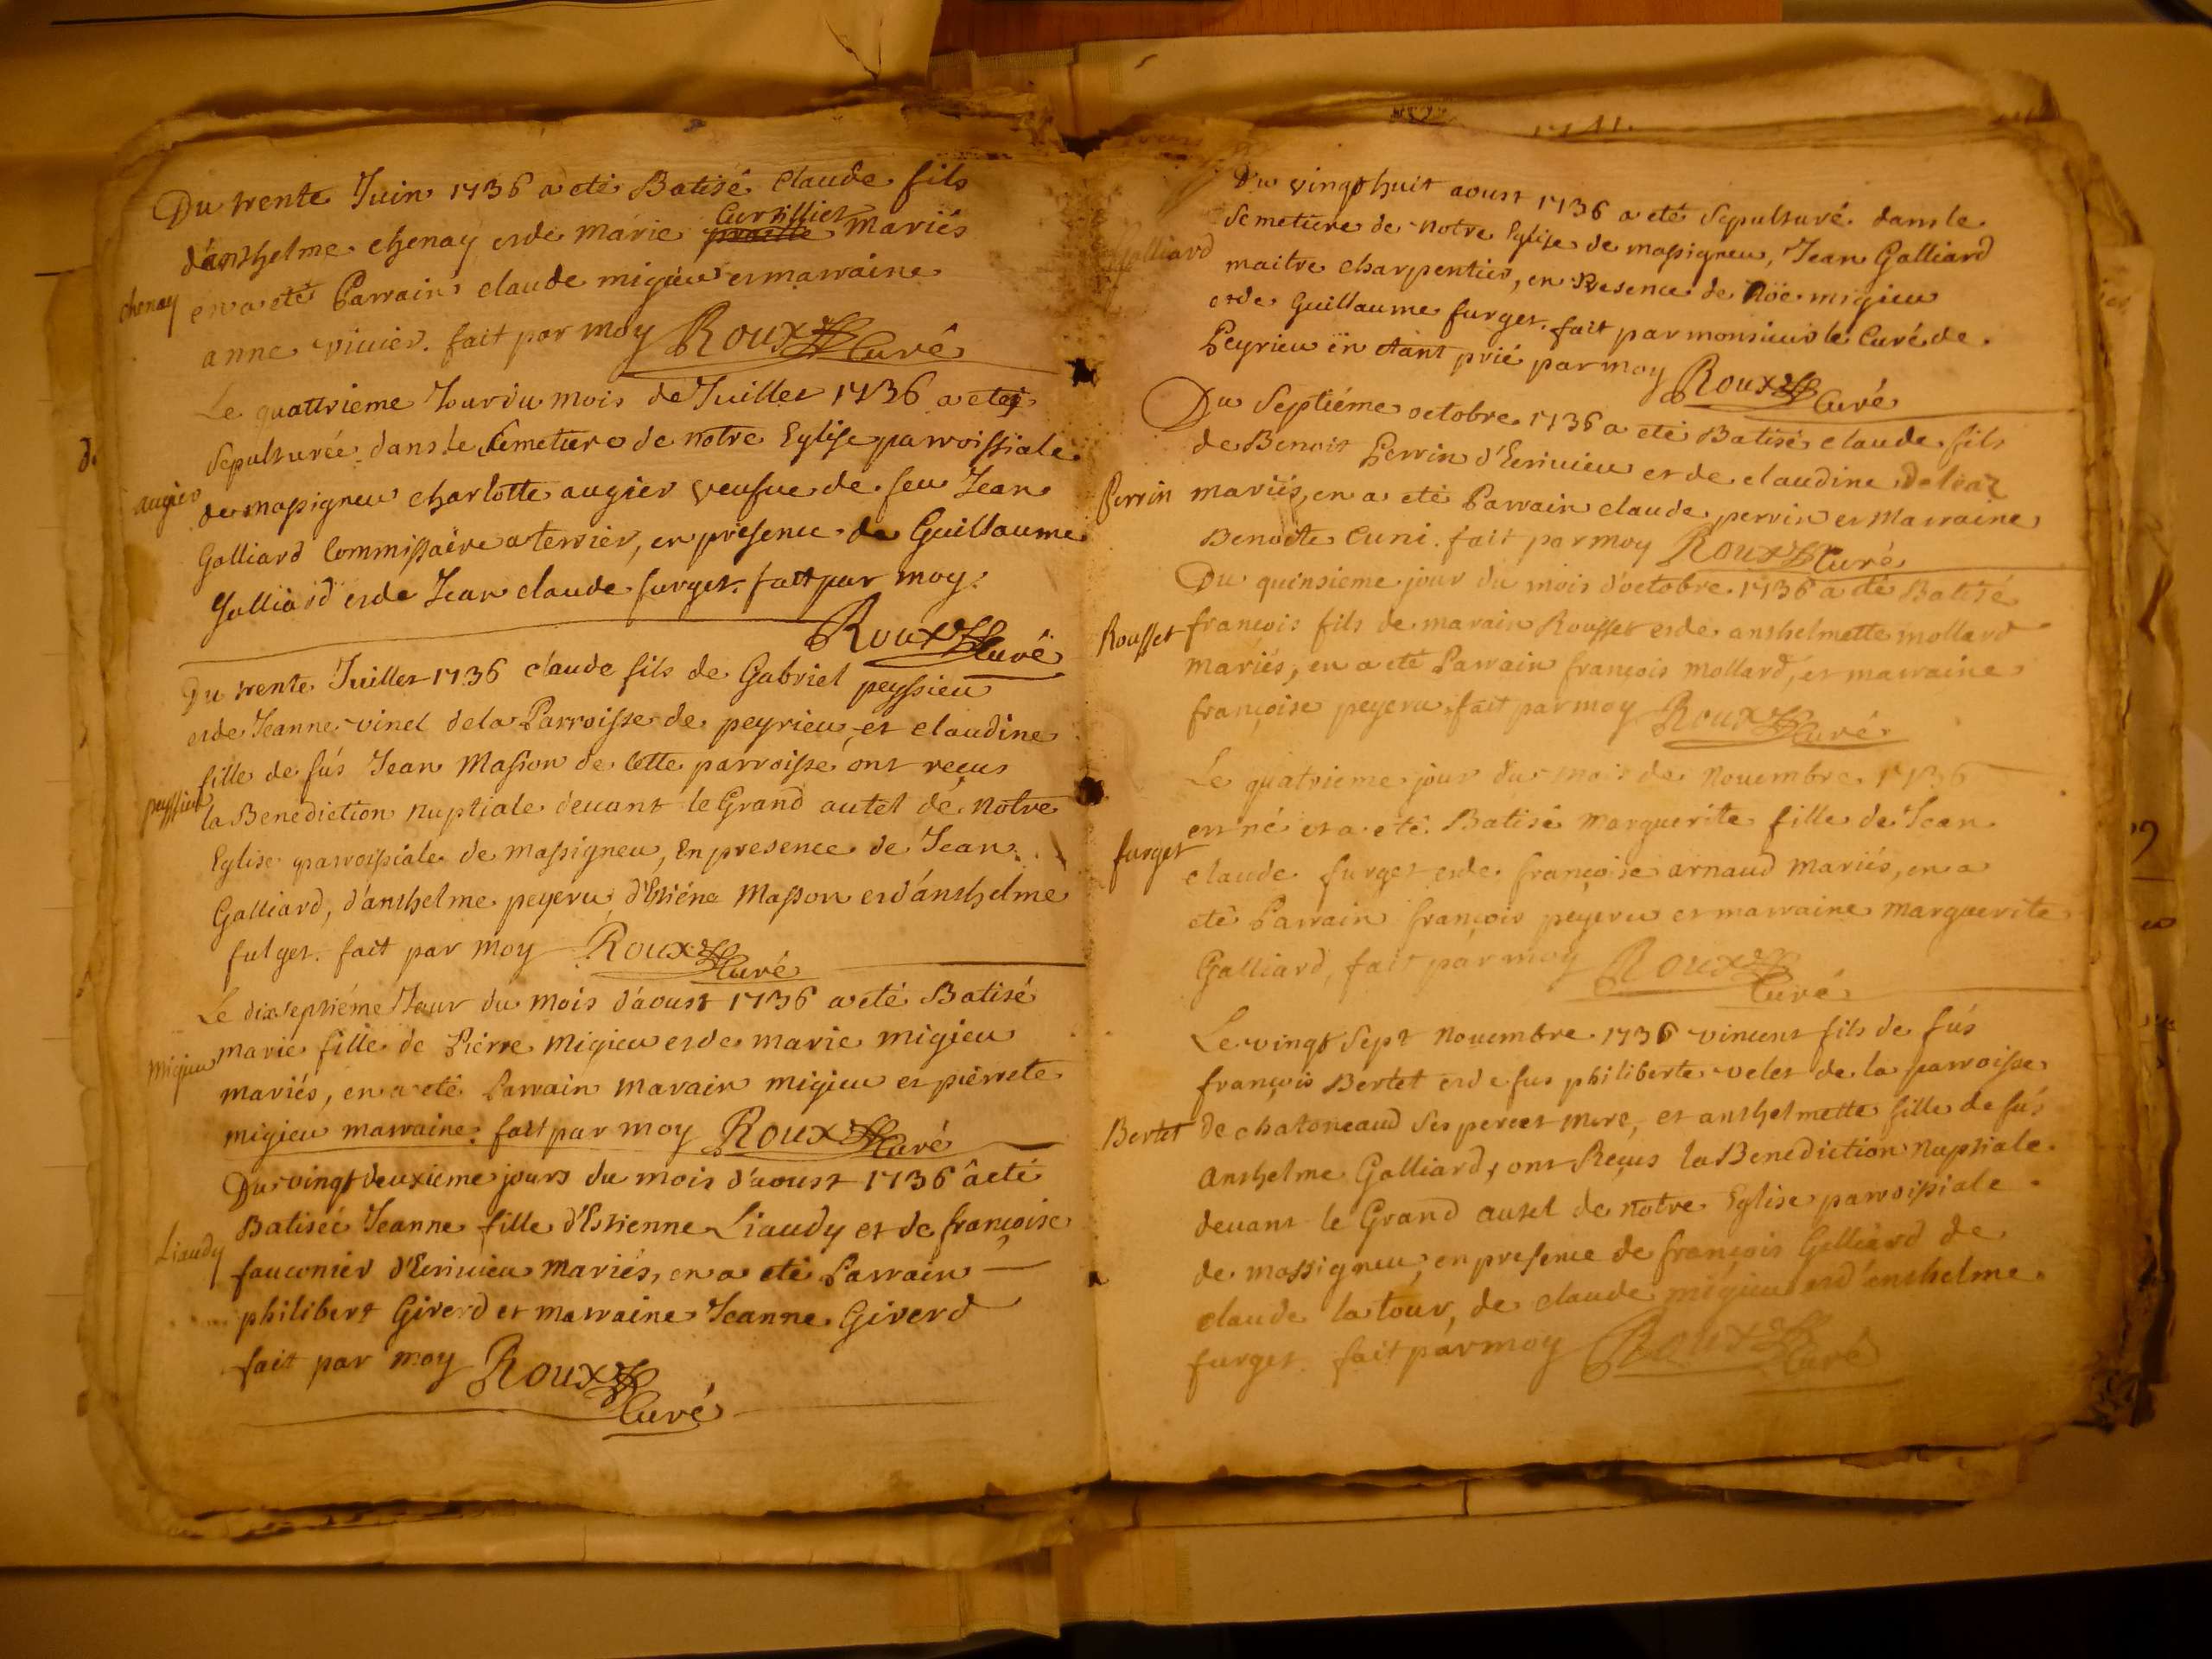 Du trente Juin 1736 a eté Batisé Claude fils
d'anthelme chenay et de marie Curtilliet mariés
chenay
en a eté Parrain claude migieu et marraine
anne vivier. fait par moy Roux Curé
Le quattrieme Jour du mois de Juillet 1736 a eté
Sepulturée dans le Cemetiere de notre Eglise parroissiale
augier
de massigneu charlotte augier veufue de feu Jean
Galliard Commissaire a terrier, en presence de Guillaume
Galliard et de Jean claude furget. fait par moy.
Roux Curé
Du trente Juillet 1736 claude fils de Gabriel peyssieu
et de Jeanne vinel de la Parroisse de peyrieu, et claudine
fille de fús Jean Masson de Cette parroisse ont reçus
peyssieu
la Benediction nuptiale devant le Grand autel de notre
Eglise parroissiale de massigneu, En presence de Jean
Galliard, d'anthelme peyeru, d'Etiéne Masson et d'anthelme
fulget. fait par moy Roux Curé
Le dixseptiéme Jour du mois d'aoust 1736 a eté Batisé
migieu
marie fille de Pierre migieu et de marie migieu
mariés, en a eté Parrain marain migieu et pierrete
migieu marraine. fait par moy Roux Curé
Du vingt deuxieme jours du mois d'aoust 1736 â eté
Batiseé Jeanne fille d'Estienne Liaudy et de françoise
Liaudy
fauconier d'Ecrivieu mariés, en a eté Parrain
philibert Giverd et marraine Jeanne Giverd
fait par moy Roux
Curé
Du vingt huit aoust 1736 a eté Sepulturé dans le
Semetiere de notre Eglise de massigneu, Jean Galliard
Galliard
maitre charpentier, en Presence de Nöe migieu
et de Guillaume furget. fait par monsieur le Curé de
Peyrieu ën êtant prié par moy Roux Curé
Du Septiéme octobre 1736 a eté Batisé claude fils
de Benoit Perrin d'Ecrivieu et de claudine
Perrin
mariés, en a eté Parrain claude perrin et Marraine
Benoite Cuni. fait par moy Roux Curé
Du quinsieme jour du mois d'octobre 1736 a eté Batisé
Rousset
francois fils de marain Rousset et de anthelmette mollard
mariés, en a eté Parrain françois mollard, et marraine
françoise peyeru fait par moy Roux Curé
Le quatrieme jour du mois de Novembre 1736
est né et a eté Batisé marguerite fille de Jean
furget
claude furget et de françoise arnaud mariés, en a
eté Parrain françois peyeru et marraine marguerite
Galliard, fait par moy Roux
Curé
Le vingt Sept Novembre 1736 vincent fils de fús
françois Bertet et de fus philiberte velet de la parroisse
Bertet
de chatoneaud Ses pere et mere, et anthelmette fille de fús
anthelme Galliard, ont Reçus la Benediction Nuptiale
devant le Grand autel de notre Eglise parroissiale
de massigneu, en presence de françois Galliard de
claude la tour, de claude migieu et d'anthelme
furget. fait par moy Roux
Curé